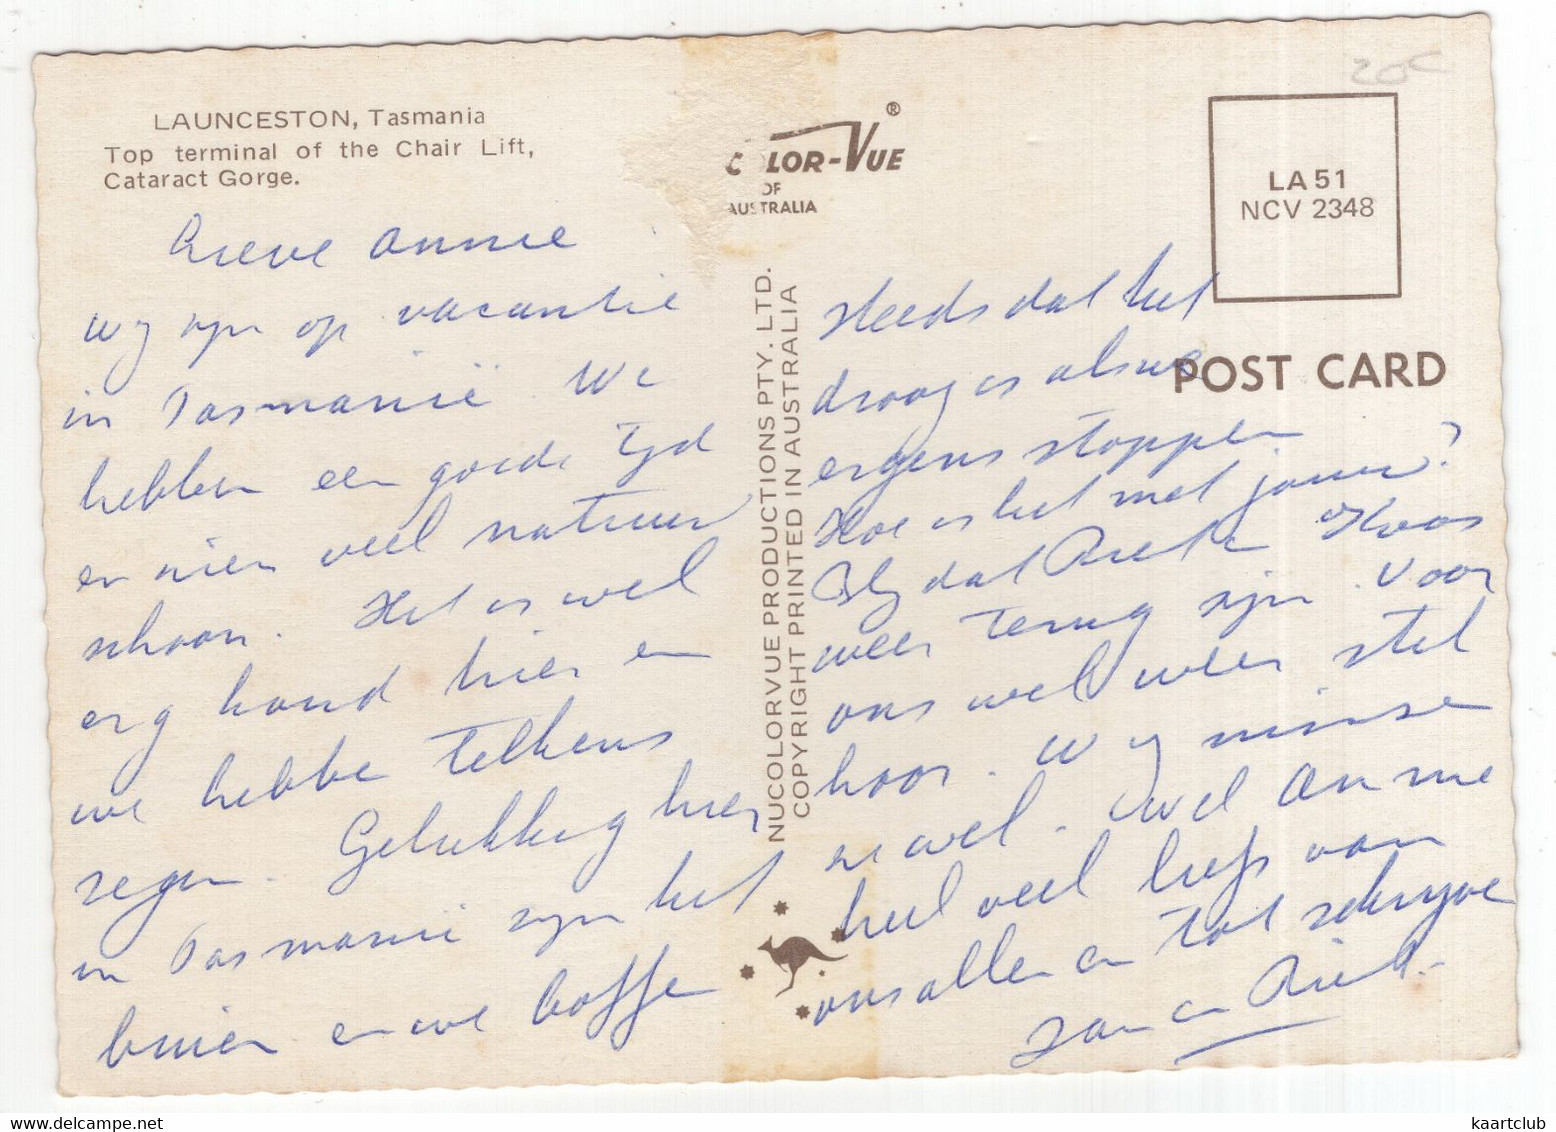 20c
LAUNCESTON, Tasmania
Top terminal of the Chair Lift,
Cataract Gorge.
COLOR-VUE ®
OF
AUSTRALIA
LA 51
NCV 2348
POST CARD
NUCOLORVUE PRODUCTIONS PTY. LTD.
COPYRIGHT PRINTED IN AUSTRALIA
Lieve Annie
wy zyn op vacantie
in Tasmanië. We
hebben een goede tyd
en zien veel natuur
schoon. Het is wel
erg koud hier en
we hebbe telkens
regen. Gelukkig hier
in Tasmanië zyn het
buien en we boffe
steeds dat het
droog is als we
ergens stoppen
Hoe is het met jouw?
Bly dat Riet en Koos
weer terug zyn. Voor
ons wel weer stil
hoor. Wy misse
ze wel. Wel Annie
heel veel liefs van
ons allen en tot schryve
Jan en Riet.
kaartclub